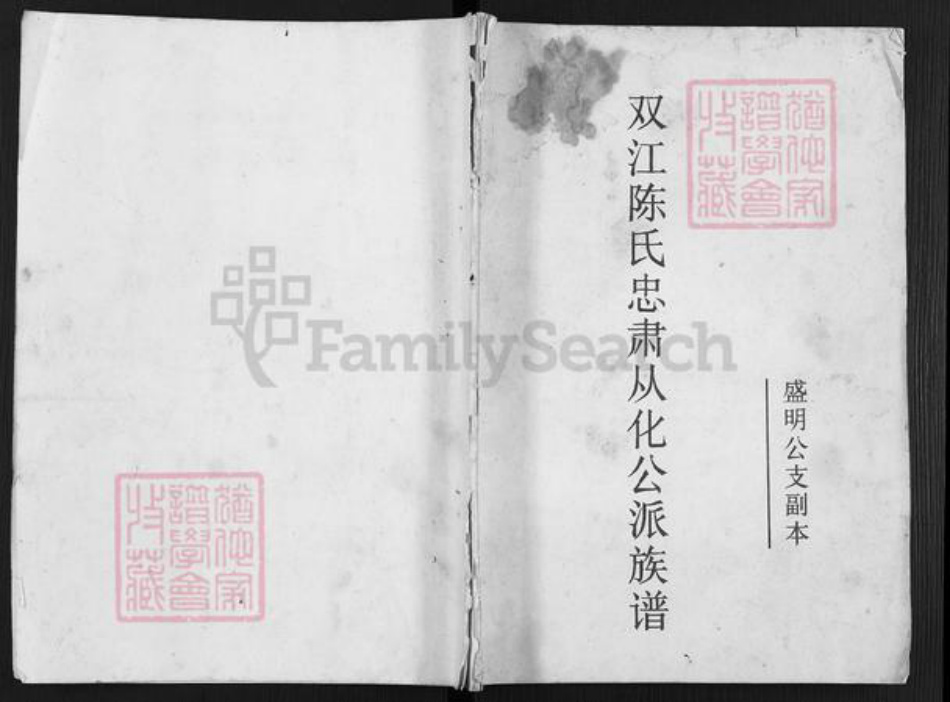 双江陈氏忠肃从化公派族谱
盛明公支副本
猶他家
譜學會
收藏
猶他家
譜學會
收藏
FamilySearch